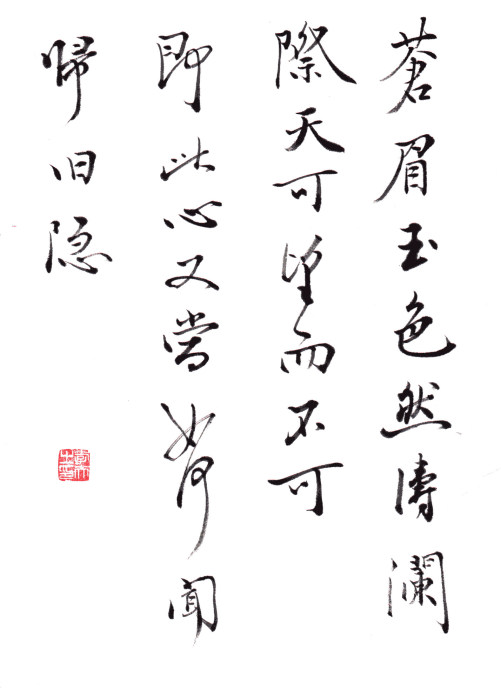 蒼眉玉色然濤瀾
際天可望而不可
即此心又當如何聞
歸旧隐